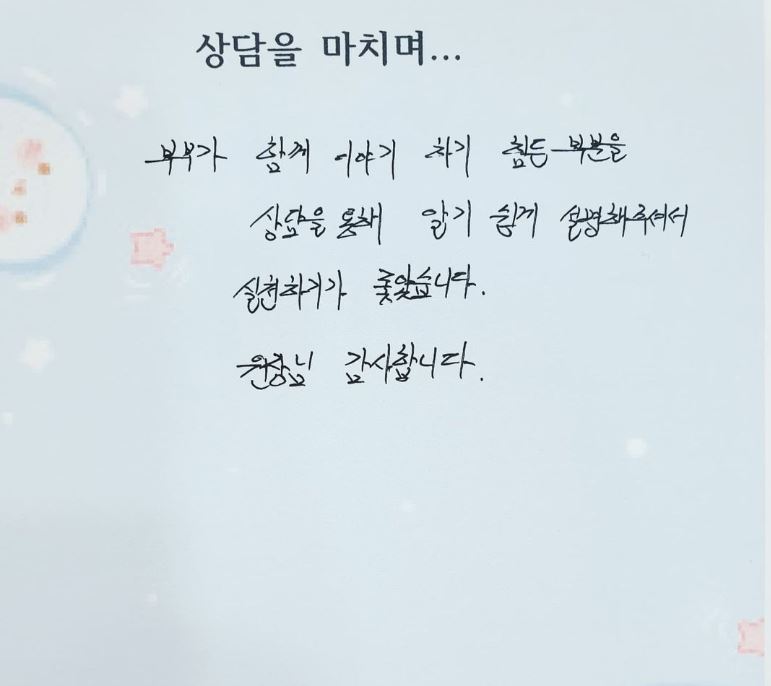 상담을 마치며...
부부가 함께 이야기 하기 힘든 부분을
상담을 통해 알기 쉽게 설명해주셔서
실천하기가 좋았습니다.
원장님 감사합니다.